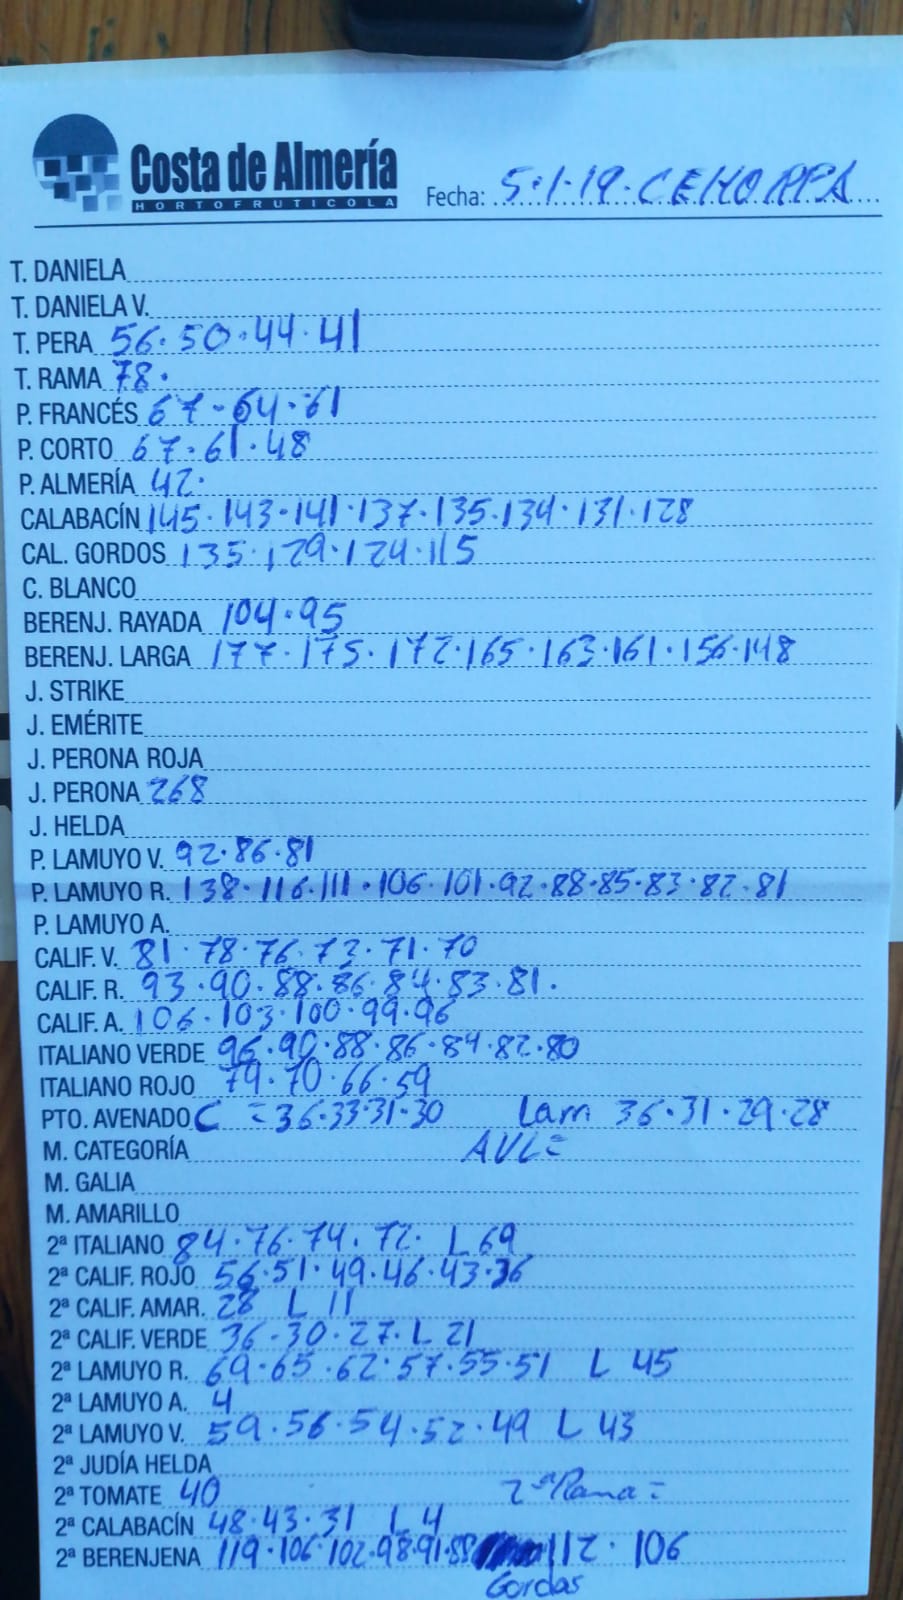 Costa de Almería
HORTOFRUTICOLA
Fecha: 5.1.19. CEHORPA
T. DANIELA
T. DANIELA V.
T. PERA 56.50.44.41
T. RAMA 78.
P. FRANCÉS 67.64.61
P. CORTO 67.61.48
P. ALMERÍA 42.
CALABACÍN 145.143.141.137.135.134.131.128
CAL. GORDOS 135.129.124.115
C. BLANCO
BERENJ. RAYADA 104.95
BERENJ. LARGA 177.175.172.165.163.161.156.148
J. STRIKE
J. EMÉRITE
J. PERONA ROJA
J. PERONA 268
J. HELDA
P. LAMUYO V. 92.86.81
P. LAMUYO R. 138.116.111.106.101.92.88.85.83.82.81
P. LAMUYO A.
CALIF. V. 81.78.76.73.71.70
CALIF. R. 93.90.88.86.84.83.81.
CALIF. A. 106.103.100.99.96
ITALIANO VERDE 96.90.88.86.84.82.80
ITALIANO ROJO 79.70.66.59
PTO. AVENADO C = 36.33.31.30 Lam 36.31.29.28
M. CATEGORÍA AVL=
M. GALIA
M. AMARILLO
2ª ITALIANO 84.76.74.72. L 69
2ª CALIF. ROJO 56.51.49.46.43.36
2ª CALIF. AMAR. 28 L 11
2ª CALIF. VERDE 36.30.27. L 21
2ª LAMUYO R. 69.65.62.57.55.51 L 45
2ª LAMUYO A. 4
2ª LAMUYO V. 59.56.54.52.49 L 43
2ª JUDÍA HELDA
2ª TOMATE 40 2ª Rama =
2ª CALABACÍN 48.43.31 L 4
2ª BERENJENA 119.106.102.98.91.88 112.106
Gordas